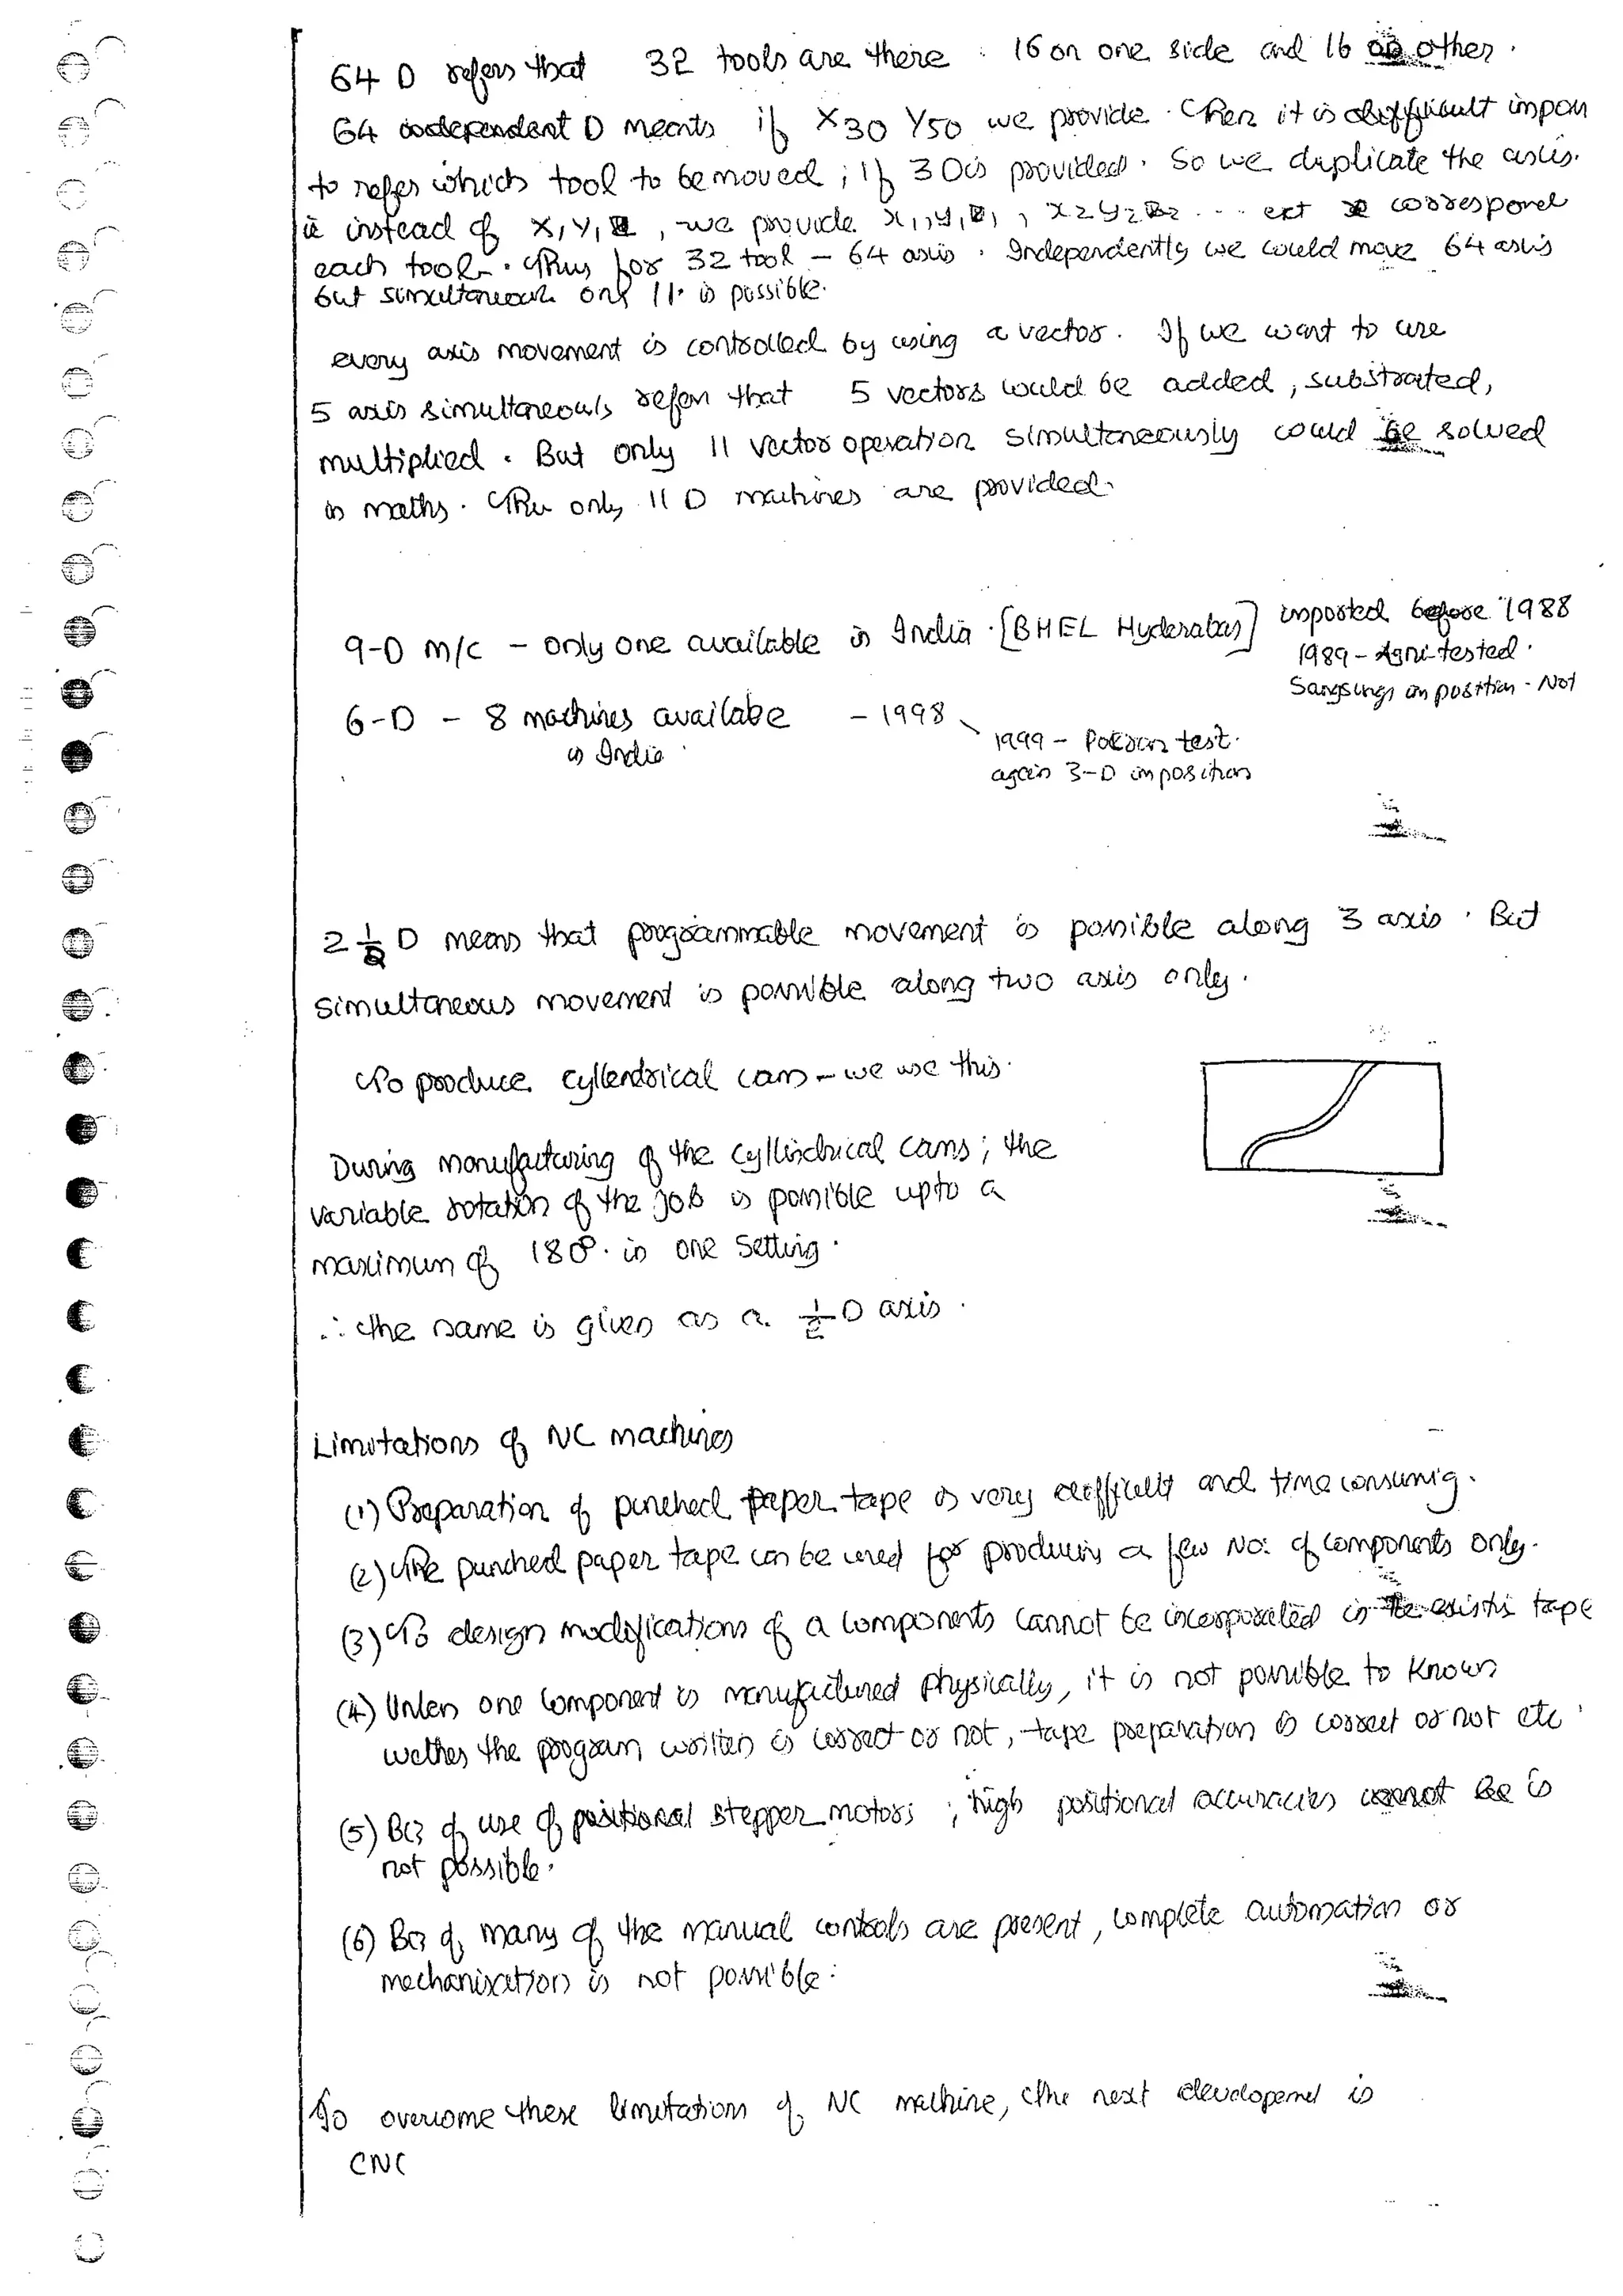 64 D refers that 32 tools are there : 16 on one side and 16 on other .
64 independent D meants if X30 Y50 we provide . Then it is difficult impon
to refer which tool to be moved ; If 30 is provided . So we duplicate the axis .
ie instead of X, Y, Z , we provide x1, y1, z1 , x2 y2 z2 ... ext correspond
each tool . Thus for 32 tool - 64 axis . Independently we could move 64 axis
but simultaneous only 11 . is possible .
every axis movement is controlled by using a vector . If we want to use
5 axis simultaneouls refers that 5 vectors could be added , substrated ,
multiplied . But only 11 vector operation simultaneously could be solved
in maths . Thu only 11 D machines are provided .
9-D m/c - only one available in India . [BHEL Hyderabas] imported before 1988
1989 - Agni tested .
imposition - Not
6-D - 8 machines availabe - 1998
in India
1999 - Pokran test .
again 3-D imposition
2 1/2 D means that programmable movement is possible along 3 axis . But
simultaneous movement is possible along two axis only .
To produce cyllendrical cam - we use this .
During manufacturing of the cyllindrical cams ; the
variable rotation of the job is possible upto a
maximum of 180° . in one setting .
∴ the same is given as a 1/2 D axis .
Limitations of NC machines
(1) Preparation of punched paper tape is very difficult and time consumig .
(2) The punched paper tape can be used for producing a few No: of components only .
(3) To design modifications of a components cannot be incorporated in the existing tape
(4) Unless one component is manufactured physically, it is not possible to known
wether the program written is correct or not , tape preparation is correct or not etc .
(5) Bcz of use of positional stepper motors ; high positional accuracies cannot be is
not possible .
(6) Bcz of many of the manual controls are present , complete automation or
mechanization is not possible .
To overcome these limitations of NC machine, the next developemet is
CNC